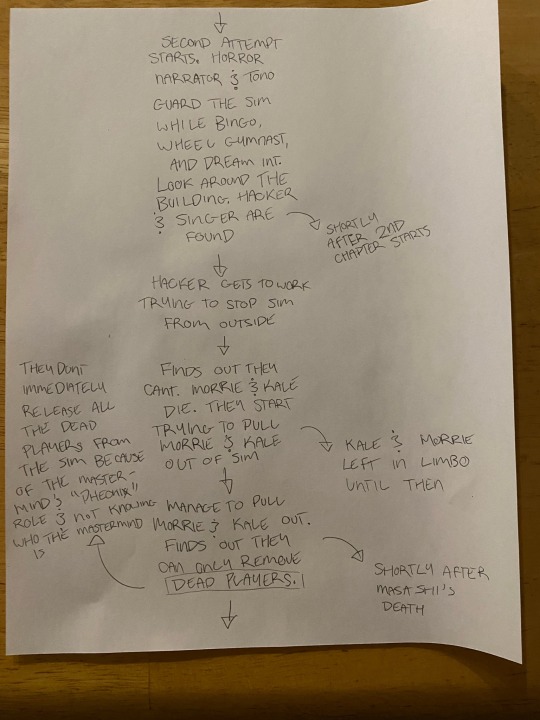 SECOND ATTEMPT
STARTS. HORROR
NARRATOR & TOMO
GUARD THE SIM
WHILE BINGO,
WHEEL GYMNAST,
AND DREAM INT.
LOOK AROUND THE
BUILDING. HACKER
& SINGER ARE
FOUND
SHORTLY
AFTER 2ND
CHAPTER STARTS
HACKER GETS TO WORK
TRYING TO STOP SIM
FROM OUTSIDE
FINDS OUT THEY
CANT. MORRIE & KALE
DIE. THEY START
TRYING TO PULL
MORRIE & KALE
OUT OF SIM
KALE & MORRIE
LEFT IN LIMBO
UNTIL THEN
MANAGE TO PULL
MORRIE & KALE OUT.
FINDS OUT THEY
CAN ONLY REMOVE
DEAD PLAYERS.
THEY DONT
IMMEDIATELY
RELEASE ALL
THE DEAD
PLAYERS FROM
THE SIM BECAUSE
OF THE MASTER-
MIND'S "PHEONIX"
ROLE & NOT KNOWING
WHO THE MASTERMIND
IS
SHORTLY AFTER
MASASHII'S
DEATH